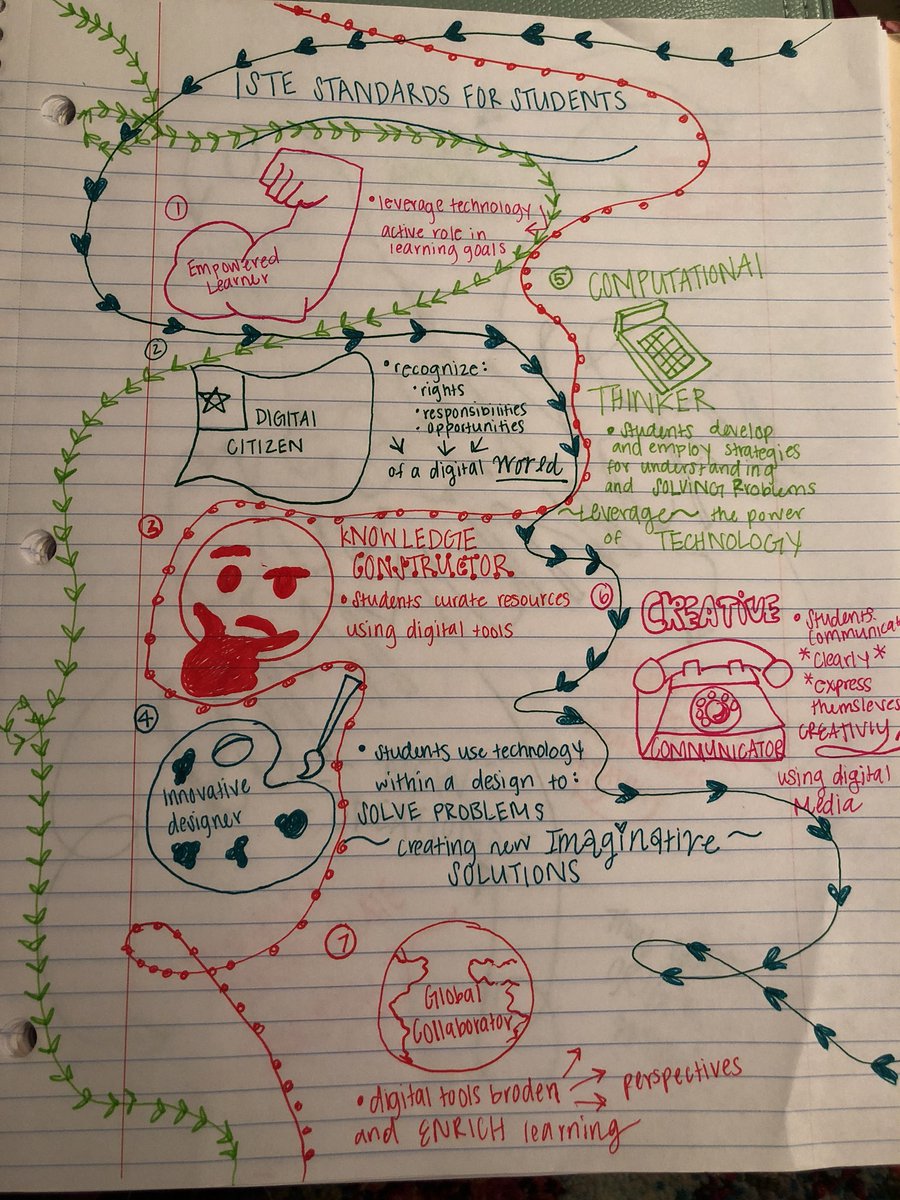 ISTE STANDARDS FOR STUDENTS
1
Empowered
Learner
• leverage technology
active role in
learning goals
2
DIGITAL
CITIZEN
• recognize:
• rights
• responsibilities
• opportunities
of a digital World
3
KNOWLEDGE
CONSTRUCTOR
• Students curate resources
using digital tools
4
innovative
designer
• students use technology
within a design to:
SOLVE PROBLEMS
~ creating new Imaginative ~
SOLUTIONS
5
COMPUTATIONAL
THINKER
• Students develop
and employ strategies
for understanding
and SOLVING Problems
~Leverage~ the power
of TECHNOLOGY
6
CREATIVE
COMMUNICATOR
• Students
communicat
*Clearly*
*express
themsleves
CREATIVLY
using digital
Media
7
Global
Collaborator
• digital tools broden perspectives
and ENRICH learning